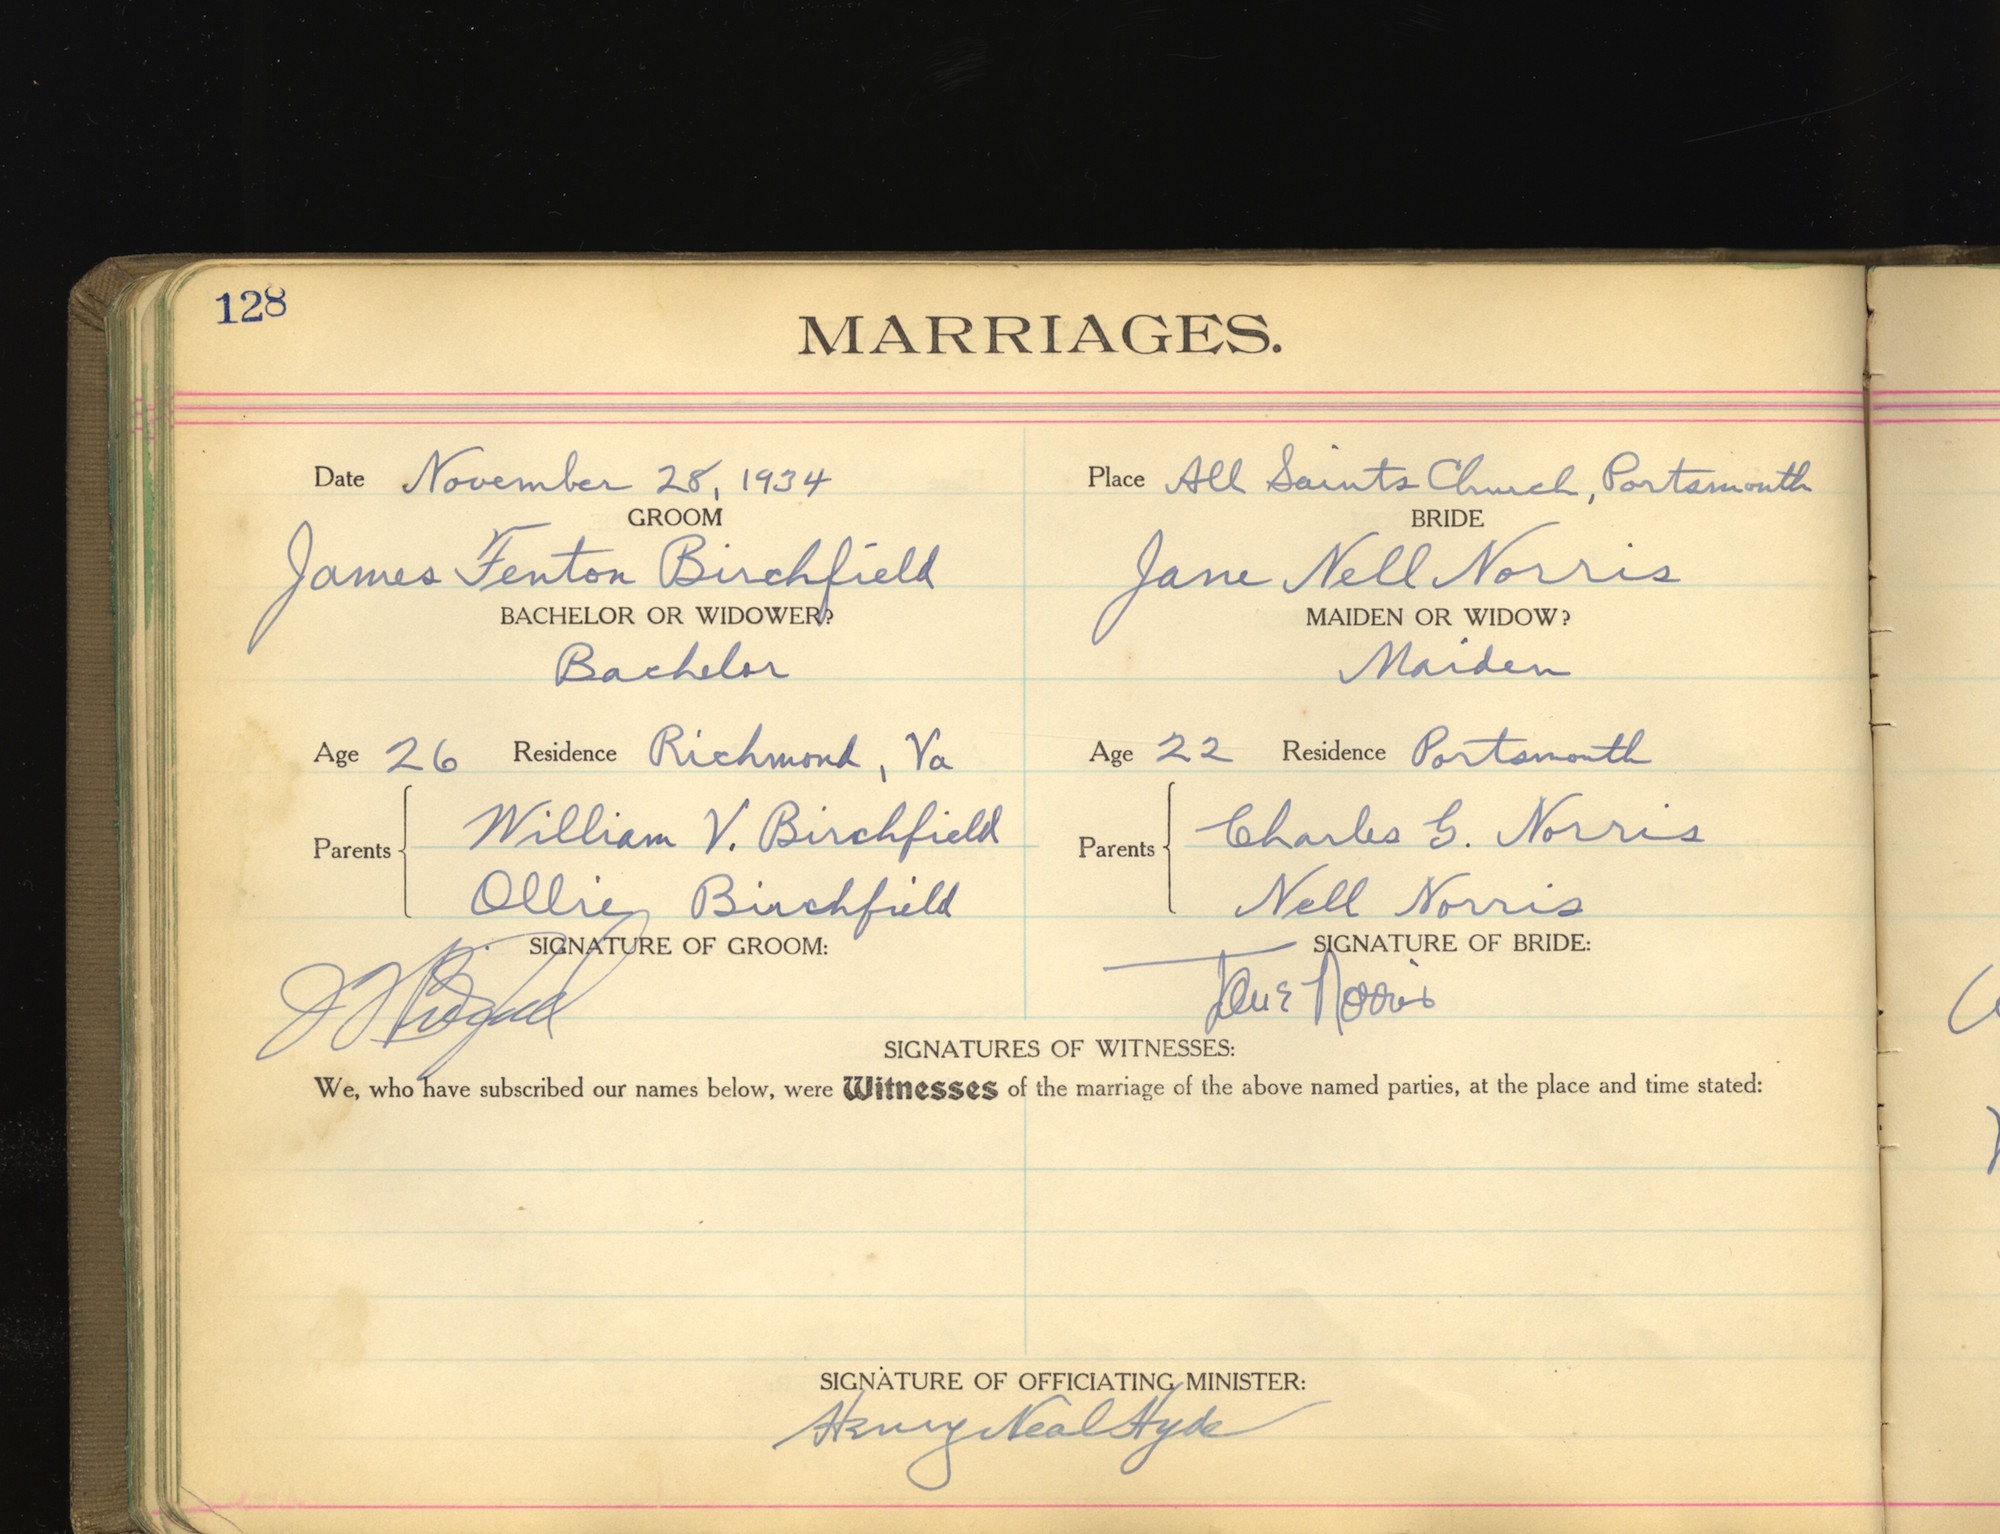 128
MARRIAGES.
Date November 28, 1934 Place All Saints Church, Portsmouth
GROOM BRIDE
James Fenton Birchfield Jane Nell Norris
BACHELOR OR WIDOWER? MAIDEN OR WIDOW?
Bachelor Maiden
Age 26 Residence Richmond, Va Age 22 Residence Portsmouth
Parents William V. Birchfield Parents Charles G. Norris
Ollie Birchfield Nell Norris
SIGNATURE OF GROOM: SIGNATURE OF BRIDE:
Jane Norris
SIGNATURES OF WITNESSES:
We, who have subscribed our names below, were Witnesses of the marriage of the above named parties, at the place and time stated:
SIGNATURE OF OFFICIATING MINISTER:
Henry Neal Hyde